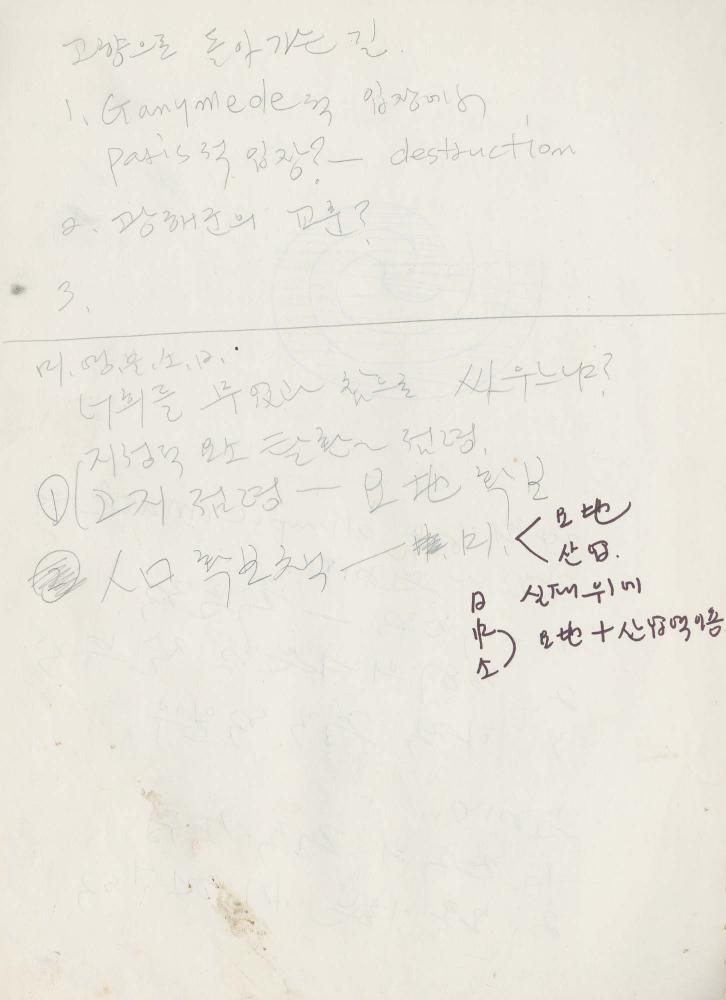 고향으로 돌아가는 길.
1. Ganymede적 입장에서
paris적 입장? — destruction
2. 광해군의 교훈?
3.
미. 영. 불. 소. 日.
너희들 무엇과 참으로 싸우느냐?
지성적 요소 탈환~ 점령.
① 고지 점령 — 요地 확보
人口 확보책 — 미. < 요地
산업.
日 실재위에
中
소 요地 + 산업역이용